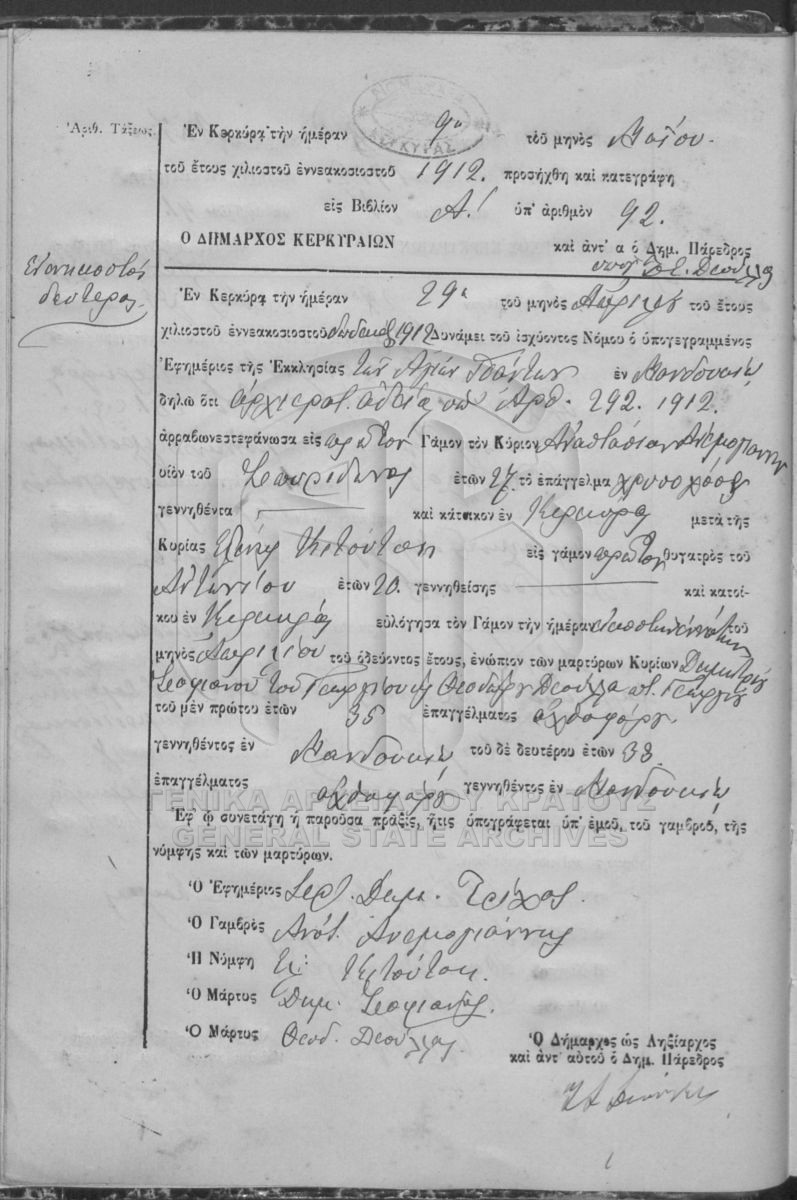 Ἀριθ. Τάξεως.
Ἐν Κερκύρᾳ τὴν ἡμέραν 9η τοῦ μηνὸς Μαΐου.
τοῦ ἔτους χιλιοστοῦ ἐννεακοσιοστοῦ 1912. προσήχθη καὶ κατεγράφη
εἰς Βιβλίον Α! ὑπ' ἀριθμὸν 92.
Ο ΔΗΜΑΡΧΟΣ ΚΕΡΚΥΡΑΙΩΝ καὶ ἀντ' α ὁ Δημ. Πάρεδρος
Ἐνενηκοστὸς
δεύτερος
Ἐν Κερκύρᾳ τὴν ἡμέραν 29η τοῦ μηνὸς Ἀπριλίου τοῦ ἔτους
χιλιοστοῦ ἐννεακοσιοστοῦ 1912 Δυνάμει τοῦ ἰσχύοντος Νόμου ὁ ὑπογεγραμμένος
Ἐφημέριος τῆς Ἐκκλησίας τῶν Ἁγίων Πάντων ἐν Μανδουκίῳ
δηλῶ ὅτι ἀρχιερατ. ἀδείᾳ Ἀρθ. 292. 1912.
ἀρραβωνεστεφάνωσα εἰς πρῶτον Γάμον τὸν Κύριον Ἀναστάσιον Ἀνεμογιάννην
υἱὸν τοῦ Σπυρίδωνος ἐτῶν 27 τὸ ἐπάγγελμα χρυσοχόος
γεννηθέντα καὶ κάτοικον ἐν Κερκύρᾳ μετὰ τῆς
Κυρίας Ἑλένης Κιτούτση εἰς γάμον πρῶτον θυγατρὸς τοῦ
Ἀντωνίου ἐτῶν 20. γεννηθείσης καὶ κατοί-
κου ἐν Κερκύρᾳ εὐλόγησα τὸν Γάμον τὴν ἡμέραν εἰκοστὴν ἐννάτην τοῦ
μηνὸς Ἀπριλίου τοῦ ὁδεύοντος ἔτους, ἐνώπιον τῶν μαρτύρων Κυρίων Δημητρίου
Σκοφιανοῦ τοῦ Γεωργίου Θεοδώρου Γεωργίου
τοῦ μὲν πρώτου ἐτῶν 35 ἐπαγγέλματος ἀχθοφόρου
γεννηθέντος ἐν Μανδουκίῳ τοῦ δὲ δευτέρου ἐτῶν 33.
ἐπαγγέλματος ἀχθοφόρου γεννηθέντος ἐν Μανδουκίῳ
ΓΕΝΙΚΑ ΑΡΧΕΙΑ ΤΟΥ ΚΡΑΤΟΥΣ
GENERAL STATE ARCHIVES
Ἐφ' ᾧ συνετάγη ἡ παροῦσα πρᾶξις, ἥτις ὑπογράφεται ὑπ' ἐμοῦ, τοῦ γαμβροῦ, τῆς
νύμφης καὶ τῶν μαρτύρων.
Ὁ Ἐφημέριος Δημ. Τρίχας.
Ὁ Γαμβρὸς Ἀνάσ. Ἀνεμογιάννης
Ἡ Νύμφη Ἑλ: Κιτούτση.
Ὁ Μάρτυς Δημ. Σκοφιανός.
Ὁ Μάρτυς Θεοδ.
Ὁ Δήμαρχος ὡς Ληξίαρχος
καὶ ἀντ' αὐτοῦ ὁ Δημ. Πάρεδρος